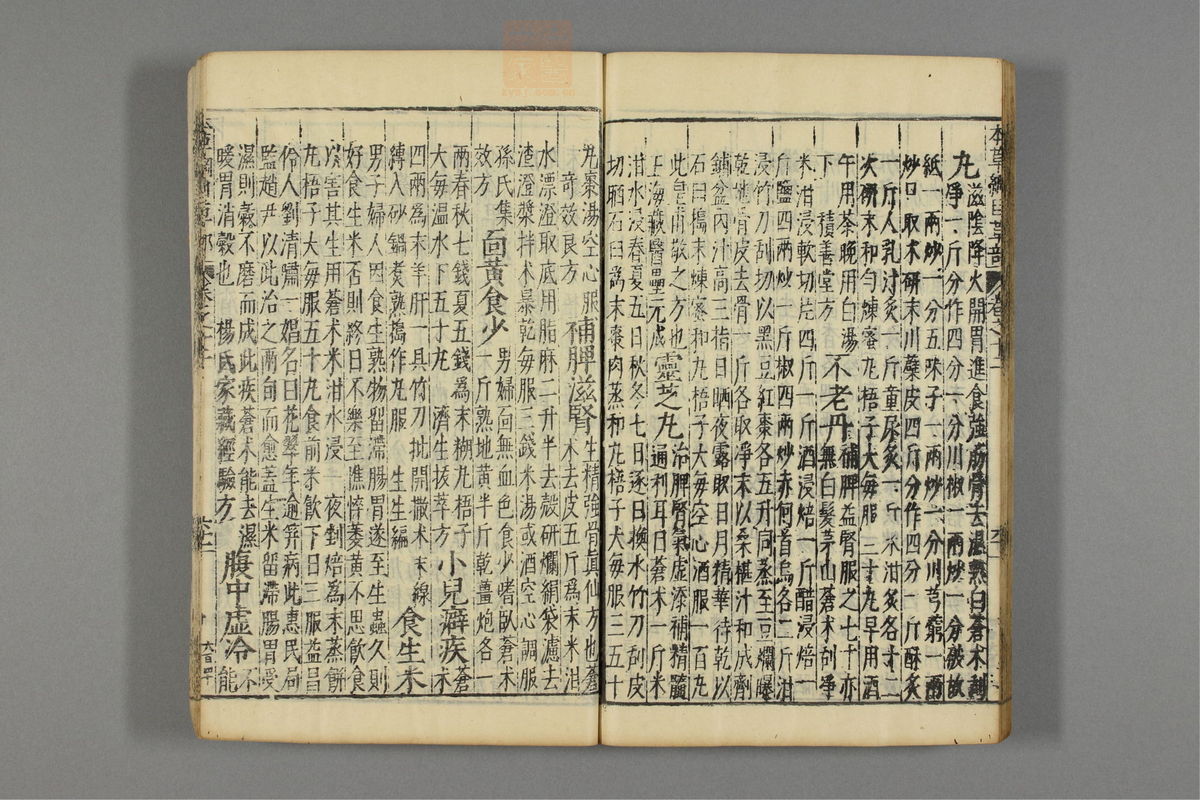 本草綱目草部 卷之十二
丸滋陰降火開胃進食強筋骨去濕熱白蒼朮刮
淨一斤分作四分一分川椒一兩炒一分破故
紙一兩炒一分五味子一兩炒一分川芎藭一兩
炒只取朮研末川蘗皮四斤分作四分一斤酥炙
一斤人乳汁炙一斤童尿炙一斤米泔炙各十二
次研末和勻煉蜜丸梧子大每服三十丸早用酒
午用茶晚用白湯下 積善堂方 不老丹補脾益腎服之七十亦
無白髮茅山蒼朮刮淨
米泔浸軟切片四斤一斤酒浸焙一斤醋浸焙一
斤鹽四兩炒一斤椒四兩炒赤何首烏各二斤泔
浸竹刀刮切以黑豆紅棗各五升同蒸至豆爛曝
乾地骨皮去骨一斤各取淨末以桑椹汁和成劑
鋪盆內汁高三指日晒夜露取日月精華待乾以
石臼搗末煉蜜和丸梧子大每空心酒服一百丸
此皇甫敬之方也
王海藏醫壘元戎 靈芝丸治脾腎氣虛添補精髓
通利耳目蒼朮一斤米
泔水浸春夏五日秋冬七日逐日換水竹刀刮皮
切晒石臼爲末棗肉蒸和丸梧子大每服三五十
丸棗湯空心服
奇效良方 補脾滋腎生精強骨眞仙方也蒼
朮去皮五斤爲末米泔
水漂澄取底用脂麻二升半去殼研爛絹袋濾去
渣澄漿拌朮暴乾每服三錢米湯或酒空心調服
孫氏集
效方 面黃食少男婦面無血色食少嗜臥蒼朮
一斤熟地黃半斤乾薑炮各一
兩春秋七錢夏五錢爲末糊丸梧子
大每溫水下五十丸 濟生拔萃方 小兒癖疾蒼
朮
四兩爲末羊肝一具竹刀批開撒朮末線
縛入砂鍋煮熟搗作丸服 生生編 食生米
男子婦人因食生熟物留滯腸胃遂至生蟲久則
好食生米否則終日不樂至憔悴萎黃不思飲食
以害其生用蒼朮米泔水浸一夜剉焙爲末蒸餅
丸梧子大每服五十丸食前米飲下日三服益昌
伶人劉清嘯一娼名曰花翠年逾笄病此惠民局
監趙尹以此治之兩旬而愈蓋生米留滯腸胃受
濕則穀不磨而成此疾蒼朮能去濕
暖胃消穀也 楊氏家藏經驗方 腹中虛冷不
能